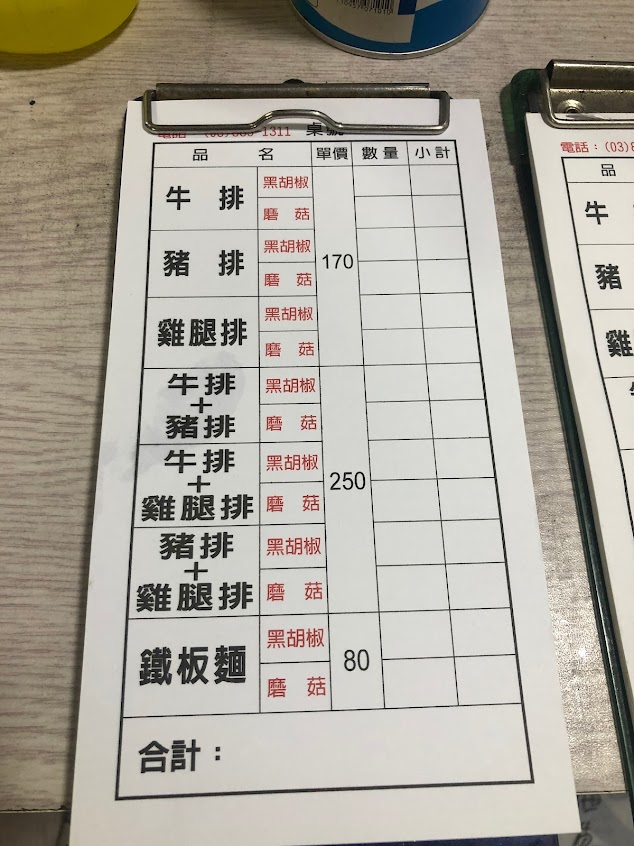 1311 桌號
品 名 單價 數量 小計
牛 排 黑胡椒
磨 菇
豬 排 黑胡椒
磨 菇
170
雞腿排 黑胡椒
磨 菇
牛排
+
豬排
黑胡椒
磨 菇
牛排
+
雞腿排
黑胡椒
磨 菇
250
豬排
+
雞腿排
黑胡椒
磨 菇
鐵板麵 黑胡椒
磨 菇
80
合計：
電話：(03)8
品
牛
豬
雞